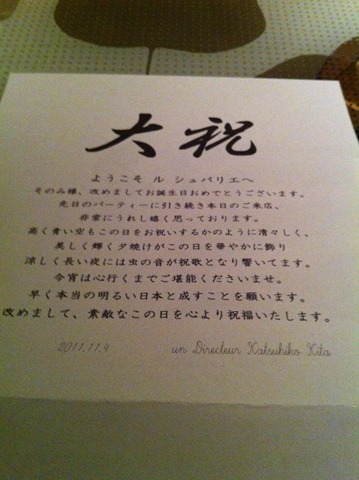 大祝
ようこそ ル シュバリエへ
そのみ様、改めましてお誕生日おめでとうございます。
先日のパーティーに引き続き本日のご来店、
非常にうれし嬉く思っております。
高く青い空もこの日をお祝いするかのように清々しく、
美しく輝く夕焼けがこの日を華やかに飾り
涼しく長い夜には虫の音が祝歌となり響いてます。
今宵は心行くまでご堪能くださいませ。
早く本当の明るい日本と成すことを願います。
改めまして、素敵なこの日を心より祝福いたします。
2011.11.4 un Directeur Katsuhiko Kita